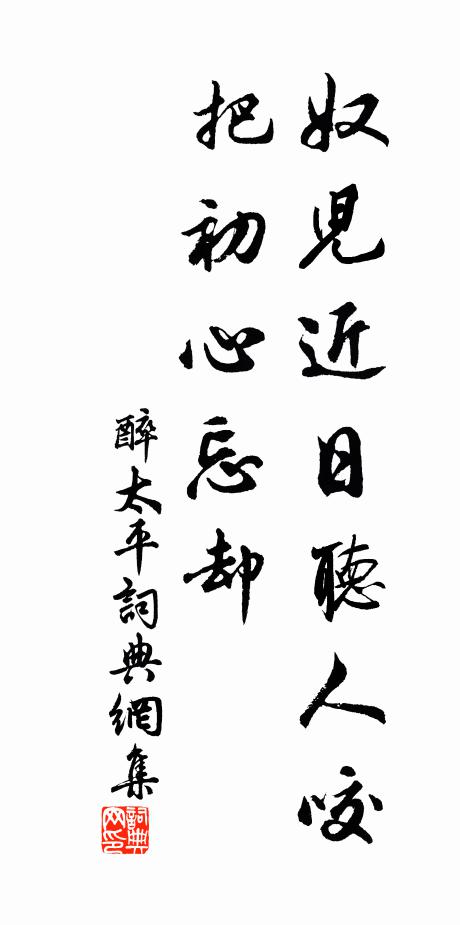 奴児近日聴人咬
把初心忘却
醉太平詞典網集
詞典网印